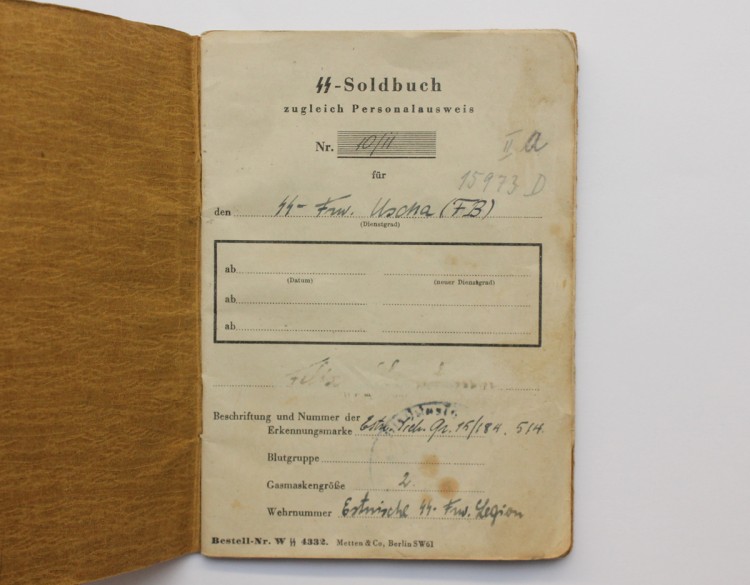 ᛋᛋ-Soldbuch
zugleich Personalausweis
Nr. 10/11
II a
für
15973 D
den ᛋᛋ- Frw. Uscha (FB)
(Dienstgrad)
ab
(Datum) (neuer Dienstgrad)
ab
ab
Beschriftung und Nummer der
Erkennungsmarke 514.
Blutgruppe
Gasmaskengröße 2.
Wehrnummer Estnische ᛋᛋ- Frw. Legion
Bestell-Nr. W ᛋᛋ 4332. Metten & Co., Berlin SW61